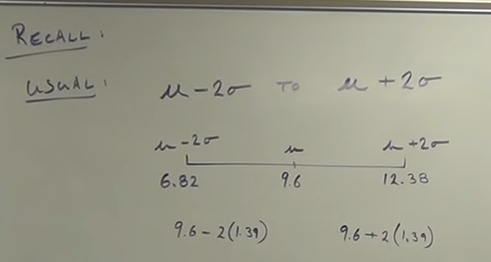 RECALL:
USUAL: μ-2σ TO μ+2σ
μ-2σ μ μ+2σ
6.82 9.6 12.38
9.6-2(1.39) 9.6+2(1.39)